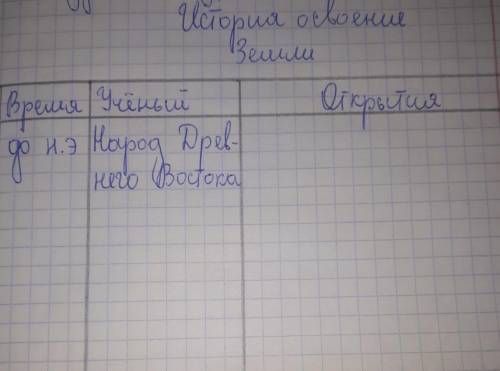 История освоение
Земли
Время Учёный Открытия
до н.э Народ Древ-
него Востока